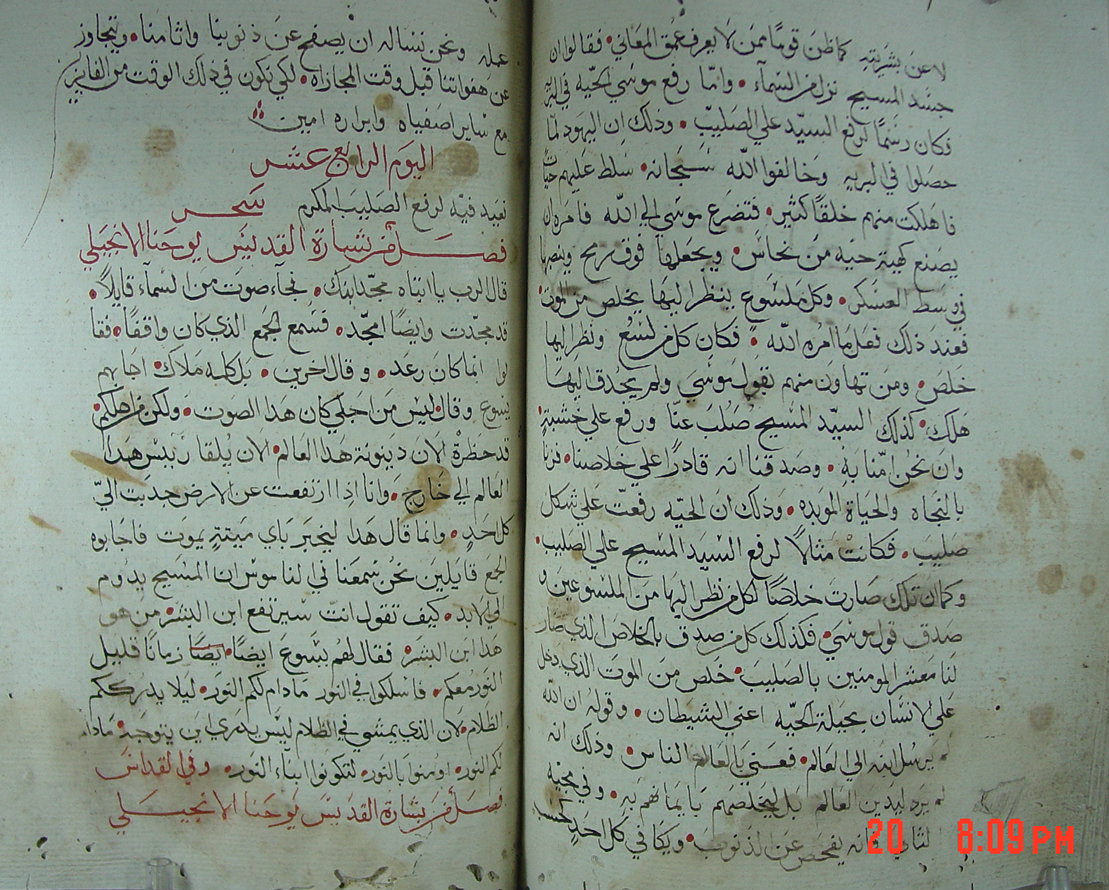 لا عن بشريته كما ظن قومًا ممن لا يعرف عمق المعاني • فقالوا ان
جسد المسيح نزل من السمآء • وانما رفع موسي الحيّه في البرّ
فكان رسمًا لرفع السيّد علي الصليب • وذلك ان اليهود لما
حصلوا في البريه وخالفوا الله سبحانه • سلط عليهم حيات
فاهلكت منهم خلقًا كثير • فتضرع موسي الي الله فامره ان
يصنع كهية حيه من نحاس • ويجعلها فوق رمح وينصبها
في وسط العسكر • وكل ملسوع ينظر اليها يخلص من الموت
فعند ذلك فعل ما امره الله • فكان كل من لسع ونظر اليها
خلص • ومن تهاون منهم بقول موسي ولم يحدق اليها
هلك • كذلك السيّد المسيح صلب عنا ورفع علي خشبةٍ
وان نحن امنّا به • وصدقنا انه قادرًا علي خلاصنا • فزنا
بالنجاه والحياة الموبده • وذلك ان الحيّه رفعت علي شكل
صليب • فكانت مثالًا لرفع السيّد المسيح علي الصليب •
وكما ان تلك صارت خلاصًا لكل من نظر اليها من الملسوعين و
صدق قول موسي • فكذلك كل من صدق بالخلاص الذي صار
لنا معشر المومنين بالصليب • خلص من الموت الذي دخل
علي الانسان بحيلة الحيّه اعني الشيطان • وقوله ان الله
لم يرسل ابنه الي العالم • فعني بالعالم الناس • وذلك انه
لم يرد ليدين العالم بل ليخلصهم بايمانهم به • وفي مجيه
الثاني فانه يفحص عن الذنوب • ويكافي كل احدٍ بحسب
عمله ونحن نساله ان يصفح عن ذنوبنا واثامنا • ويتجاوز
عن هفواتنا قبل وقت المجازاه • لكي نكون في ذلك الوقت من الفايزين
مع ساير اصفياه وابراره امين
اليوم الرابع عشر
نعيد فيه لرفع الصليب المكرم سحر
فصل من بشارة القديس يوحنا الانجيلي
قال الرب يا ابتاه مجّد ابنك • فجآء صوت من السمآء قايلًا •
قد مجّدت وايضًا امجّد • فسمع الجمع الذي كان واقفًا • فقا
لوا انما كان رعد • وقال اخرين • بل كلمه ملاك • اجابهم
يسوع وقال • ليس من اجلي كان هذا الصوت • ولكن من اجلكم •
قد حظرة الان دينونة هذا العالم • الان يُلقا رييس هذا
العالم الي خارج • وانا اذا ارتفعت عن الارض جدبت اليّ
كل احدٍ • وانما قال هذا ليخبر باي ميتةٍ يموت فاجابوه
الجمع قايلين نحن سمعنا في الناموس ان المسيح يدوم
الي الابد • كيف تقول انت سيرتفع ابن البشر • من هو
هذا ابن البشر • فقال لهم يسوع ايضًا • ايضًا زمانًا قليل
النور معكم • فاسلكوا في النور مادام لكم النور • ليلا يدرككم
الظلام • لان الذي يمشي في الظلام ليس يدري اين يتوجه • مادام
لكم النور • اومنوا بالنور • لتكونوا ابناء النور • وفي القداس
فصل من بشارة القديس يوحنا الانجيلي
20 8:09 PM